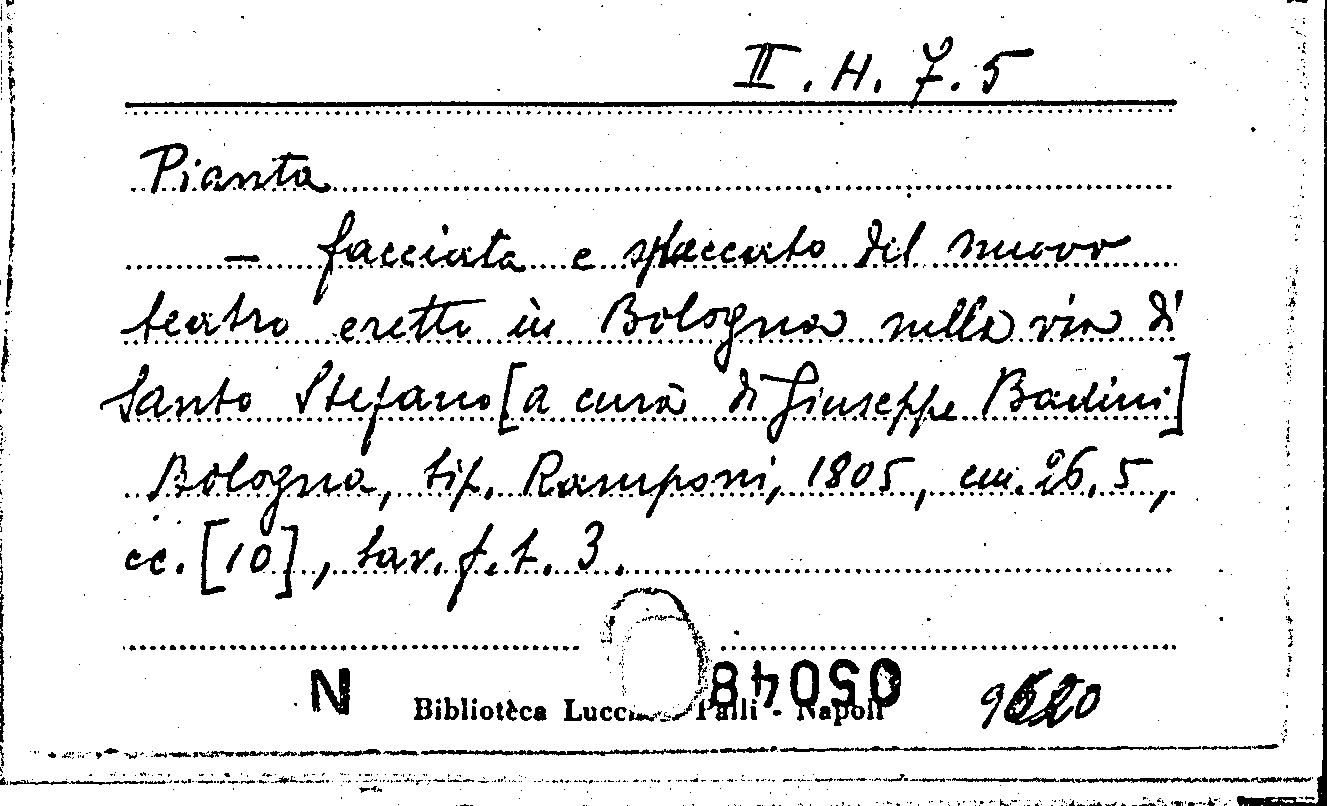 II. H. 7. 5
Pianta
— facciata e spaccato del nuovo
teatro eretto in Bologna nella via di
Santo Stefano [a cura di Giuseppe Badini]
Bologna, tip. Ramponi, 1805, cm. 26,5,
cc. [10], tav. f. t. 3.
N 05048
Biblioteca Palli - Napoli